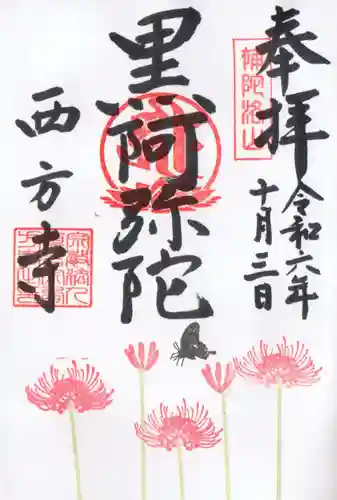 奉拝
令和六年
十月三日
補陀洛山
黒阿弥陀
西方寺